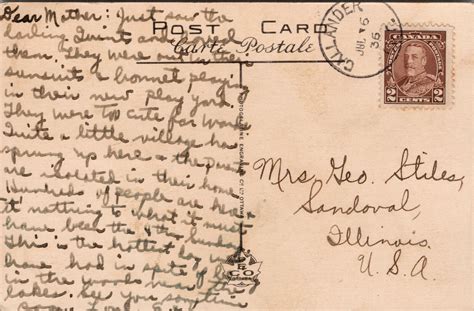 Dear Mother: Just saw the
darling Quints and
them. They were out in their
sunsuits & bonnet playing
in their new play yard.
They were too cute for words
Quite a little village has
sprung up here & the
are isolated in their home
Hundreds of people are here
it nothing to what it must
have been the 4th Sunday
This is the hottest day we
have had in spite of
in the woods near the
lakes. See you sometime
POST CARD
Carte Postale
CALLANDER
6
36
CANADA
2 CENTS 2
Mrs. Geo. Stiles,
Sandoval,
Illinois.
U.S.A.